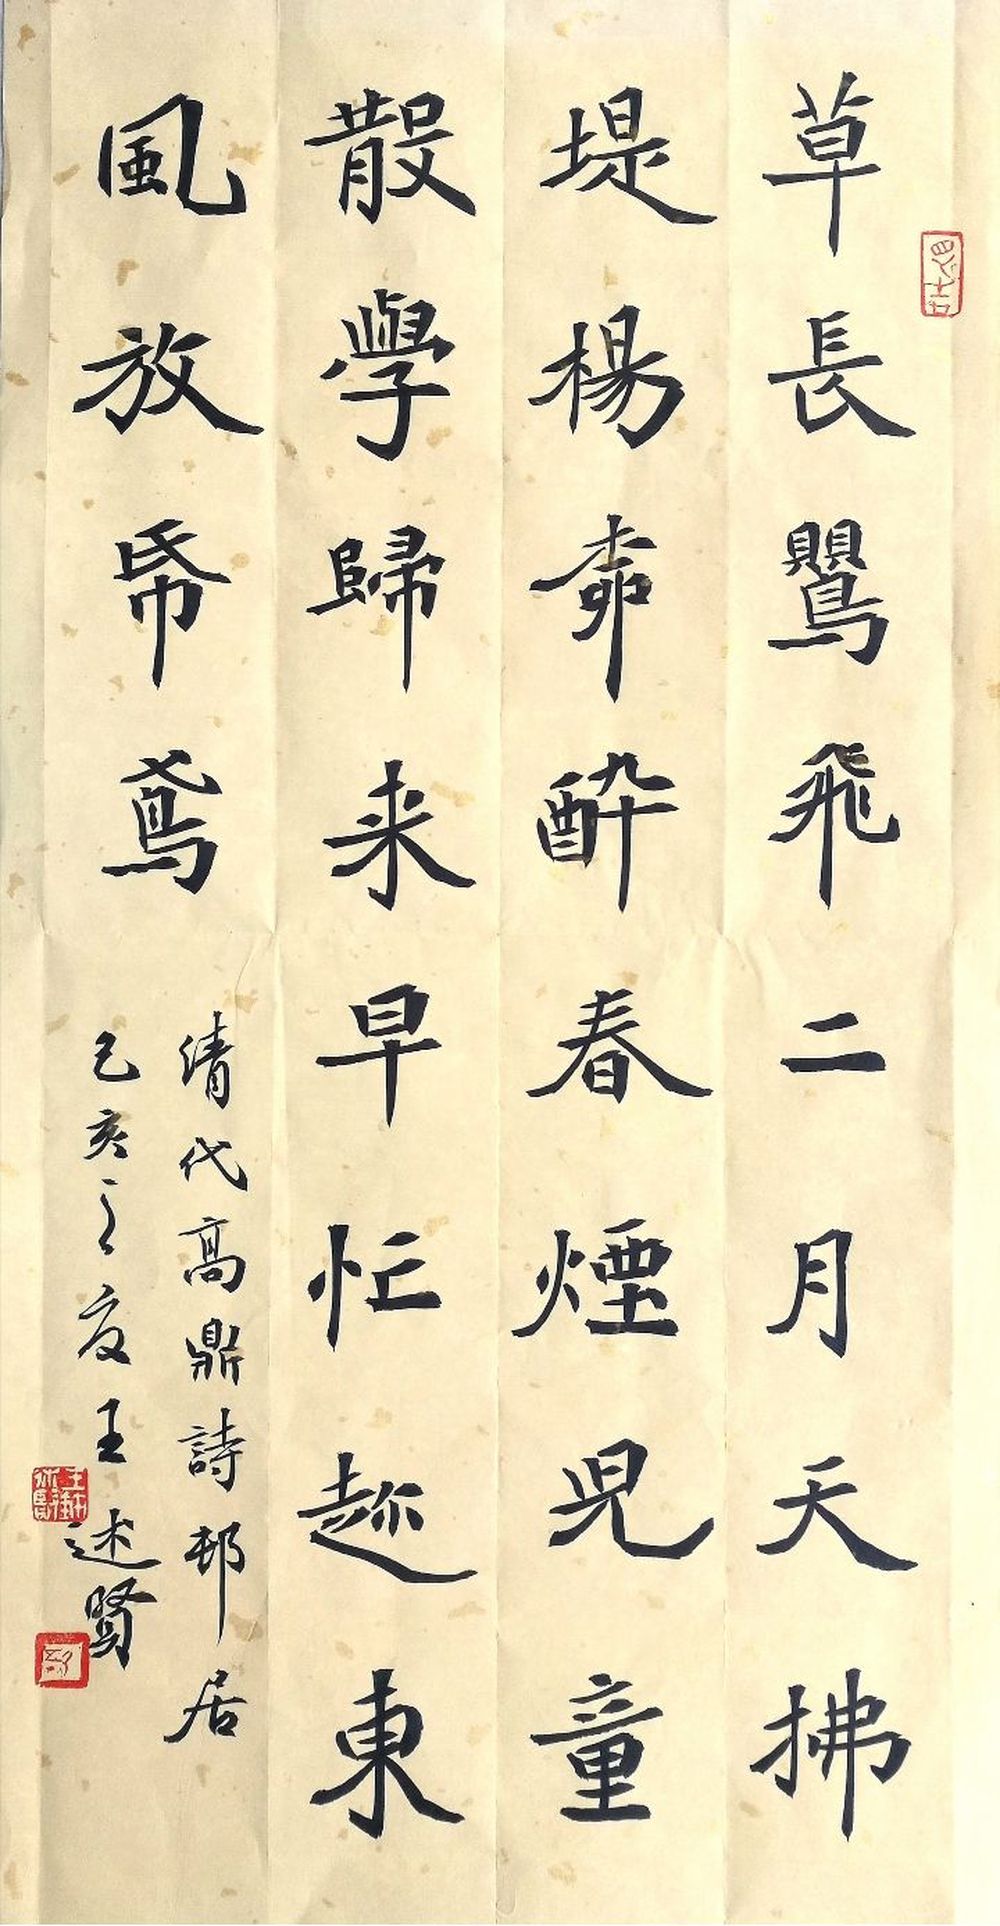 草長鸎飛二月天拂
堤楊桺醉春煙児童
散學歸来早忙趂東
風放帋鳶
清代高鼎詩邨居
己亥之夏王述賢